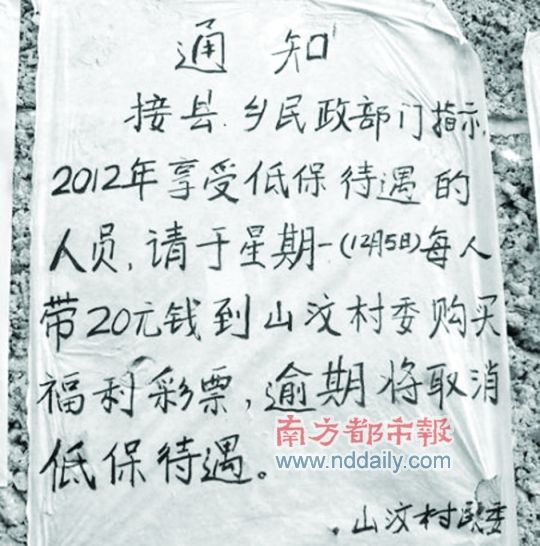 通知
接县.乡民政部门指示,
2012年享受低保待遇的
人员,请于星期一(12月5日)每人
带20元钱到山汶村委购买
福利彩票,逾期将取消
低保待遇。
南方都市報
www.nddaily.com
.山汶村委